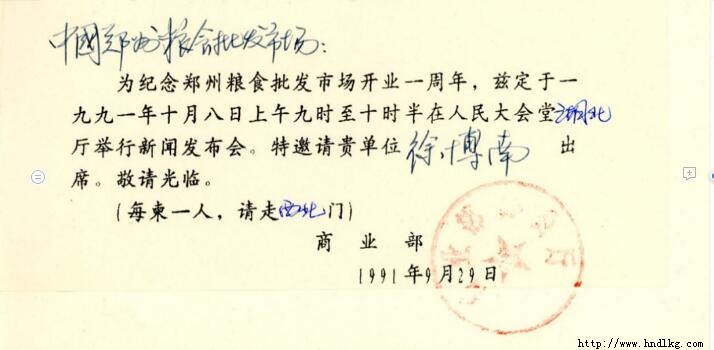 中國郑州粮食批发市场：
为纪念郑州粮食批发市场开业一周年，兹定于一
九九一年十月八日上午九时至十时半在人民大会堂湖北
厅举行新闻发布会。特邀请贵单位徐博南 出
席。敬请光临。
(每柬一人，请走西北门)
商业部
1991年9月29日
http://www.hndlkg.com